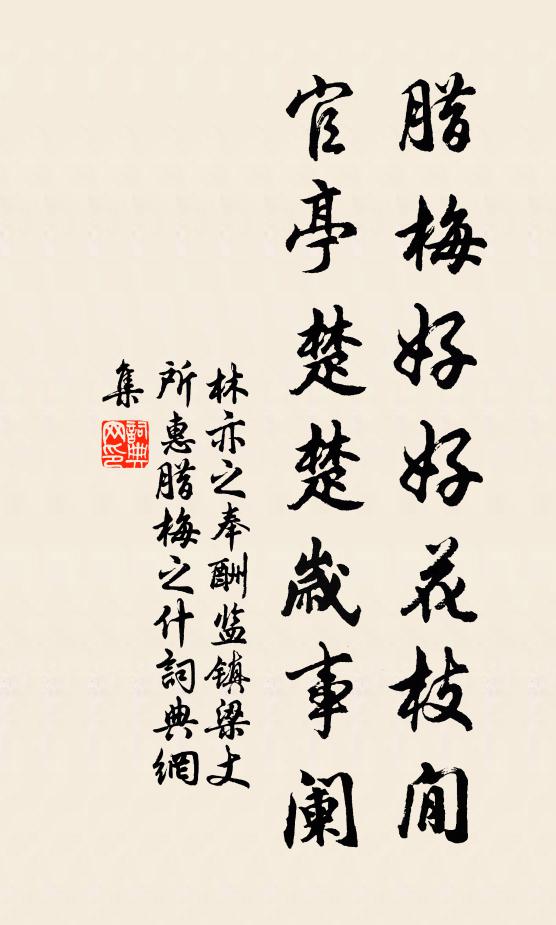 腊梅好好花枝閒
官亭楚楚歲事阑
林亦之奉酬监镇梁丈
所惠腊梅之什詞典網
集
詞典
网印